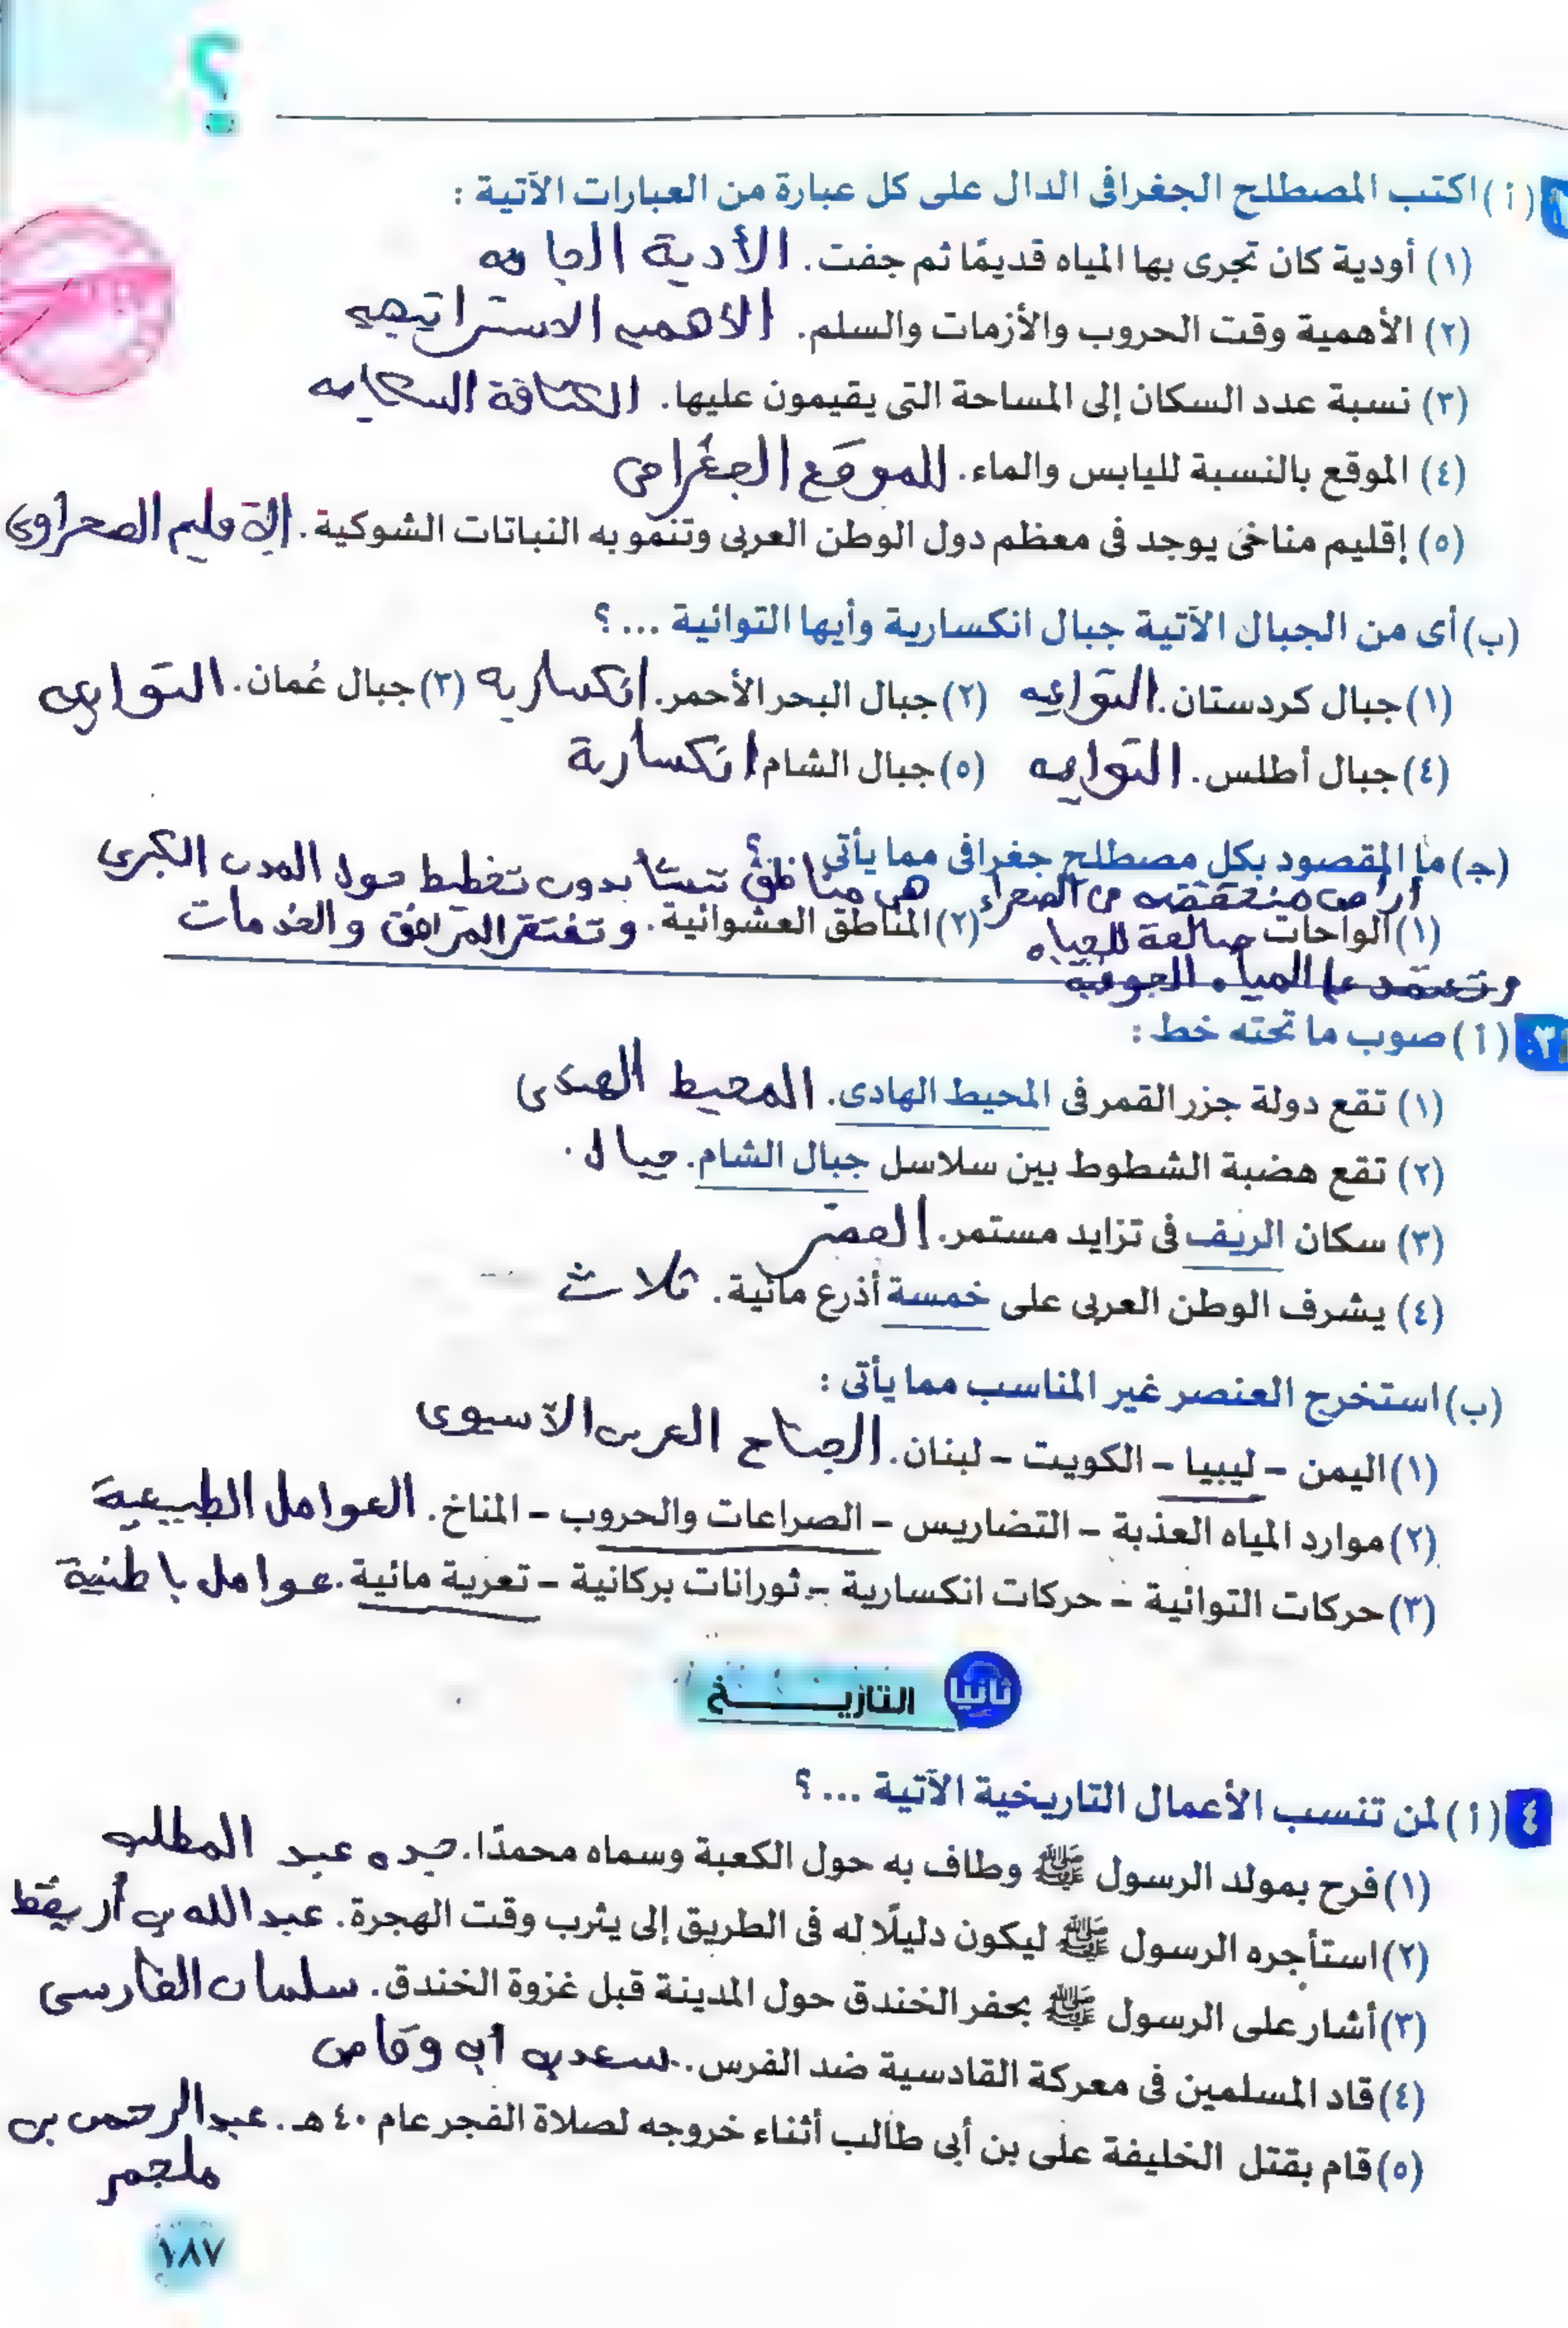 ؟
(أ) اكتب المصطلح الجغرافى الدال على كل عبارة من العبارات الآتية :
(١) أودية كان تجرى بها المياه قديمًا ثم جفت. الأدية الجافه
(٢) الأهمية وقت الحروب والأزمات والسلم. الأهميه الاستراتيجيه
(٣) نسبة عدد السكان إلى المساحة التى يقيمون عليها. الكثافة السكانيه
(٤) الموقع بالنسبة لليابس والماء. الموقع الجغرافى
(٥) إقليم مناخى يوجد فى معظم دول الوطن العربى وتنمو به النباتات الشوكية. الإقليم الصحراوى
(ب) أى من الجبال الآتية جبال انكسارية وأيها التوائية ... ؟
(١) جبال كردستان. التوائيه (٢) جبال البحر الأحمر. انكساريه (٣) جبال عُمان. التوائيه
(٤) جبال أطلس. التوائيه (٥) جبال الشام انكسارية
(ج) ما المقصود بكل مصطلح جغرافى مما يأتى ؟ هى مناطق تنشأ بدون تخطيط حول المدن الكبرى
أراضى منخفضه فى الصحراء
(١) الواحات صالحة للحياه (٢) المناطق العشوائية. وتفتقر المرافق والخدمات
وتعتمد على المياه الجوفية
٣ (أ) صوب ما تحته خط :
(١) تقع دولة جزر القمر فى المحيط الهادى. المحيط الهندى
(٢) تقع هضبة الشطوط بين سلاسل جبال الشام. جبال
(٣) سكان الريف فى تزايد مستمر. الحضر
(٤) يشرف الوطن العربى على خمسة أذرع مائية. ثلاث
(ب) استخرج العنصر غير المناسب مما يأتى :
(١) اليمن – ليبيا – الكويت – لبنان. الجناح العربى الآسيوى
(٢) موارد المياه العذبة – التضاريس – الصراعات والحروب – المناخ. العوامل الطبيعية
(٣) حركات التوائية – حركات انكسارية – ثورانات بركانية – تعرية مائية. عوامل باطنية
ثانيا التاريخ
٤ (أ) لمن تنسب الأعمال التاريخية الآتية ... ؟
(١) فرح بمولد الرسول ﷺ وطاف به حول الكعبة وسماه محمدًا. جده عبد المطلب
(٢) استأجره الرسول ﷺ ليكون دليلًا له فى الطريق إلى يثرب وقت الهجرة. عبد الله بن أريقط
(٣) أشار على الرسول ﷺ بحفر الخندق حول المدينة قبل غزوة الخندق. سلمان الفارسى
(٤) قاد المسلمين فى معركة القادسية ضد الفرس. سعد بن أبى وقاص
(٥) قام بقتل الخليفة على بن أبى طالب أثناء خروجه لصلاة الفجر عام ٤٠ هـ. عبد الرحمن بن
ملجم
١٨٧